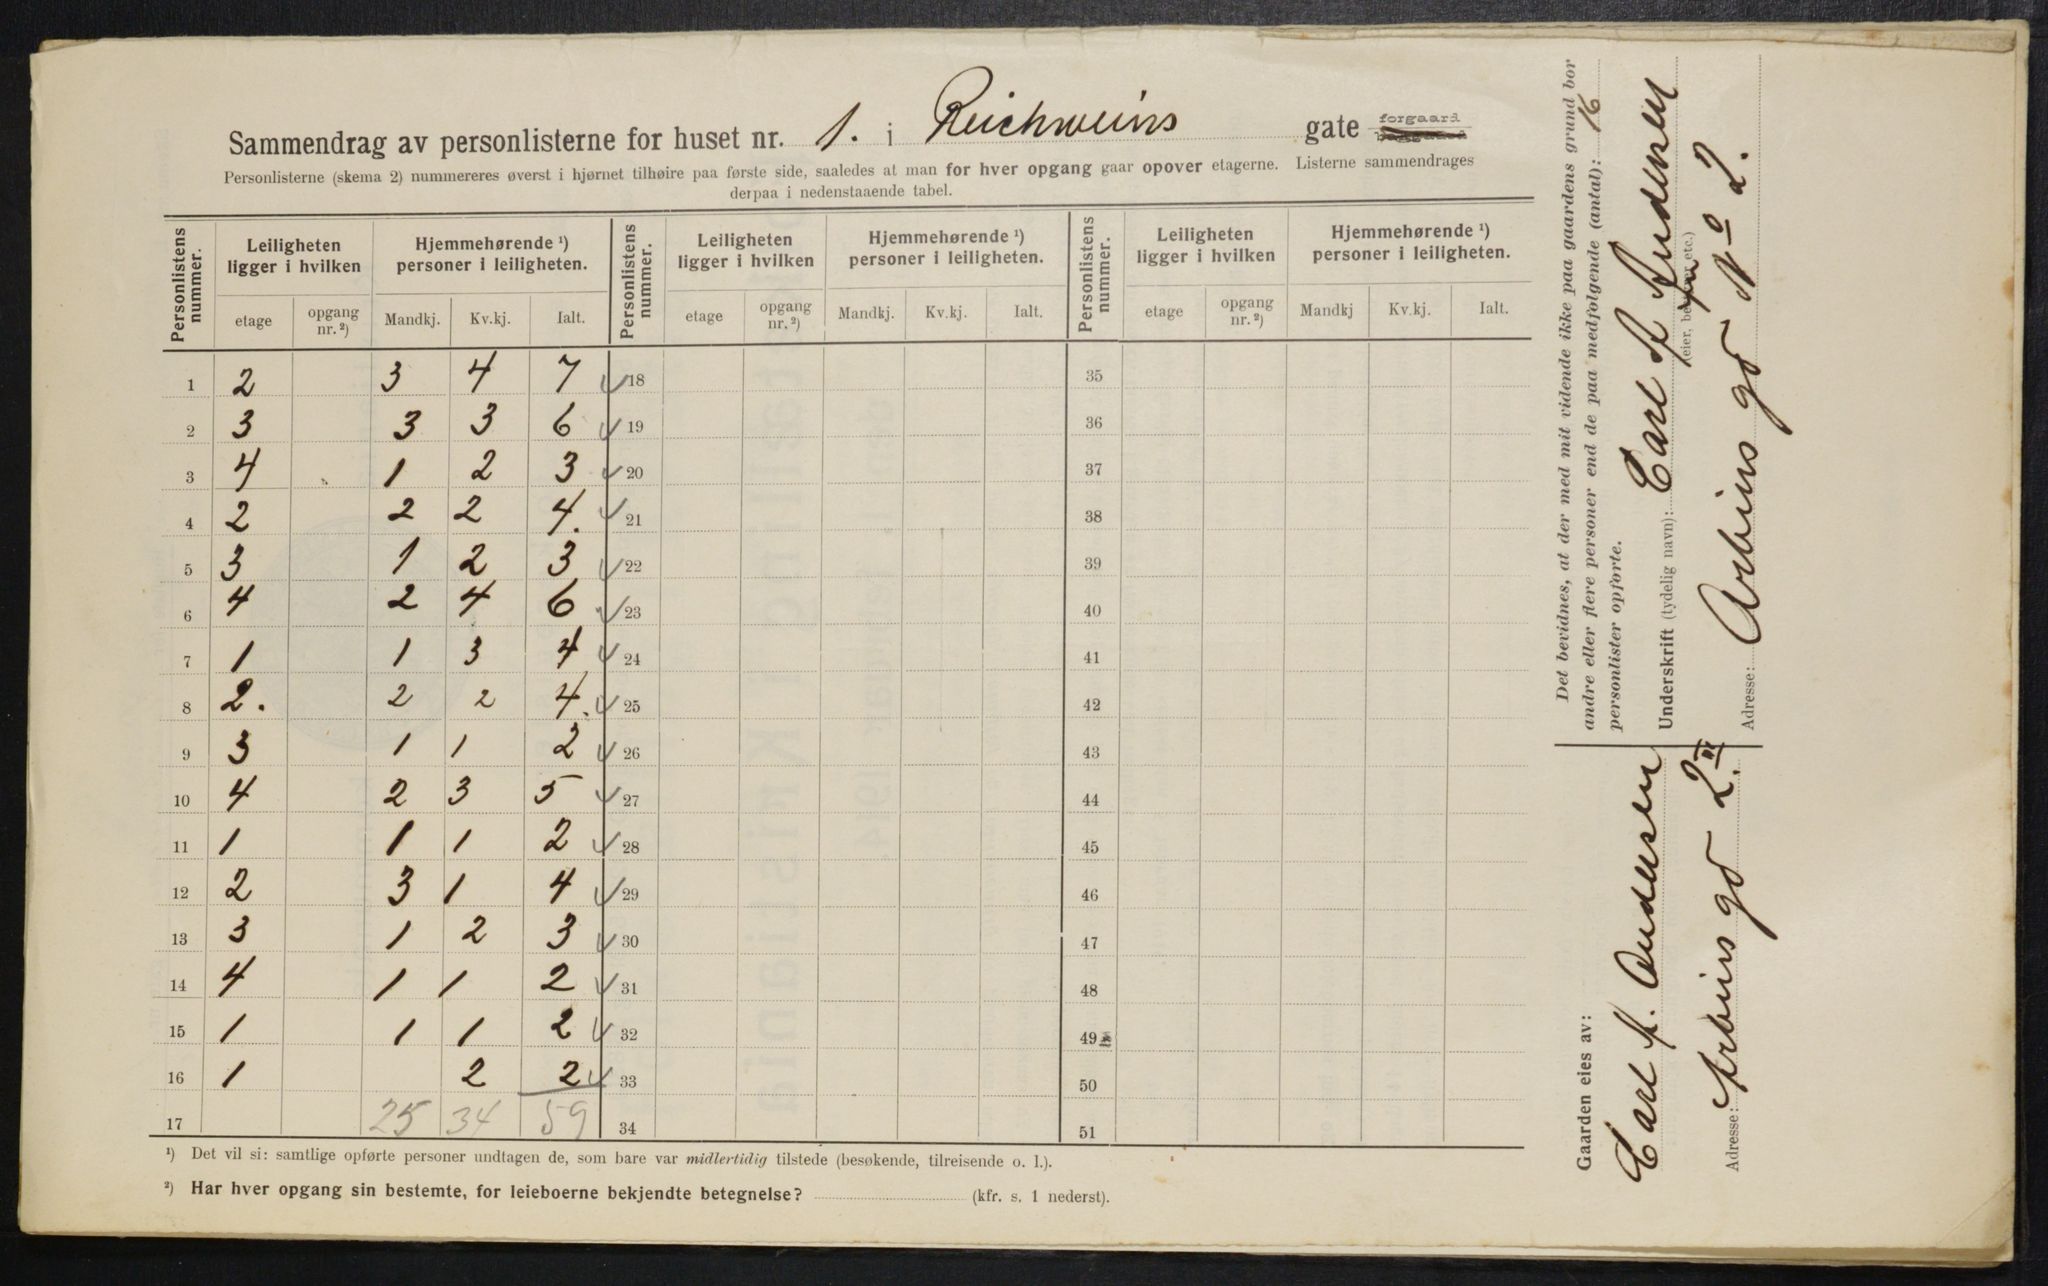 Sammendrag av personlisterne for huset nr. 1. i Reichweins gate forgaard
Personlisterne (skema 2) nummereres øverst i hjørnet tilhøire paa første side, saaledes at man for hver opgang gaar opover etagerne. Listerne sammendrages
derpaa i nedenstaaende tabel.
Personlistens nummer. Leiligheten ligger i hvilken Hjemmehørende ¹) personer i leiligheten. Personlistens nummer. Leiligheten ligger i hvilken Hjemmehørende ¹) personer i leiligheten. Personlistens nummer. Leiligheten ligger i hvilken Hjemmehørende ¹) personer i leiligheten.
etage opgang nr. ²) Mandkj. Kv.kj. Ialt. etage opgang nr. ²) Mandkj. Kv.kj. Ialt. etage opgang nr. ²) Mandkj Kv.kj. Ialt.
1 2 3 4 7 18 35
2 3 3 3 6 19 36
3 4 1 2 3 20 37
4 2 2 2 4. 21 38
5 3 1 2 3 22 39
6 4 2 4 6 23 40
7 1 1 3 4 24 41
8 2. 2 2 4. 25 42
9 3 1 1 2 26 43
10 4 2 3 5 27 44
11 1 1 1 2 28 45
12 2 3 1 4 29 46
13 3 1 2 3 30 47
14 4 1 1 2 31 48
15 1 1 1 2 32 49
16 1 2 2 33 50
17 25 34 59 34 51
¹) Det vil si: samtlige opførte personer undtagen de, som bare var midlertidig tilstede (besøkende, tilreisende o. l.).
²) Har hver opgang sin bestemte, for leieboerne bekjendte betegnelse? (kfr. s. 1 nederst).
Det bevidnes, at der med mit vidende ikke paa gaardens grund bor
andre eller flere personer end de paa medfølgende (antal): 16
personlister opførte.
Underskrift (tydelig navn): Carl A. Andersen
(eier, bestyrer etc.)
Adresse: Arbins gd No 2.
Gaarden eies av:
Carl A. Andersen
Adresse: Arbins gd 2. III